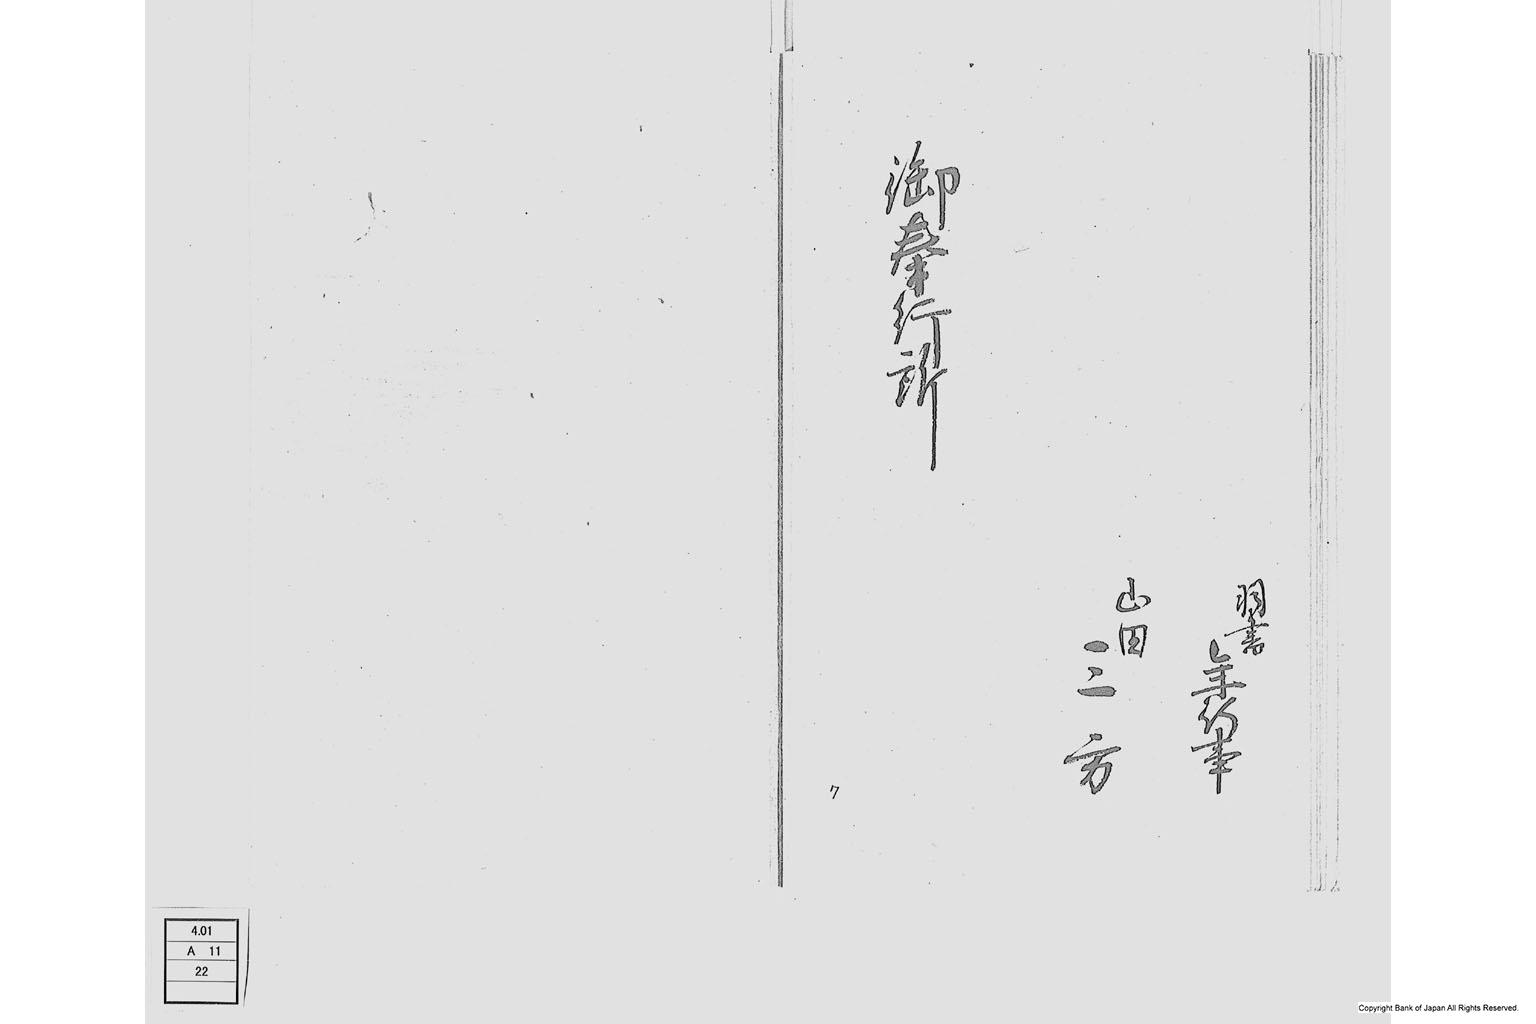 羽書
年行事
山田
三方
御奉行所
7
4.01
A 11
22
Copyright Bank of Japan All Rights Reserved.